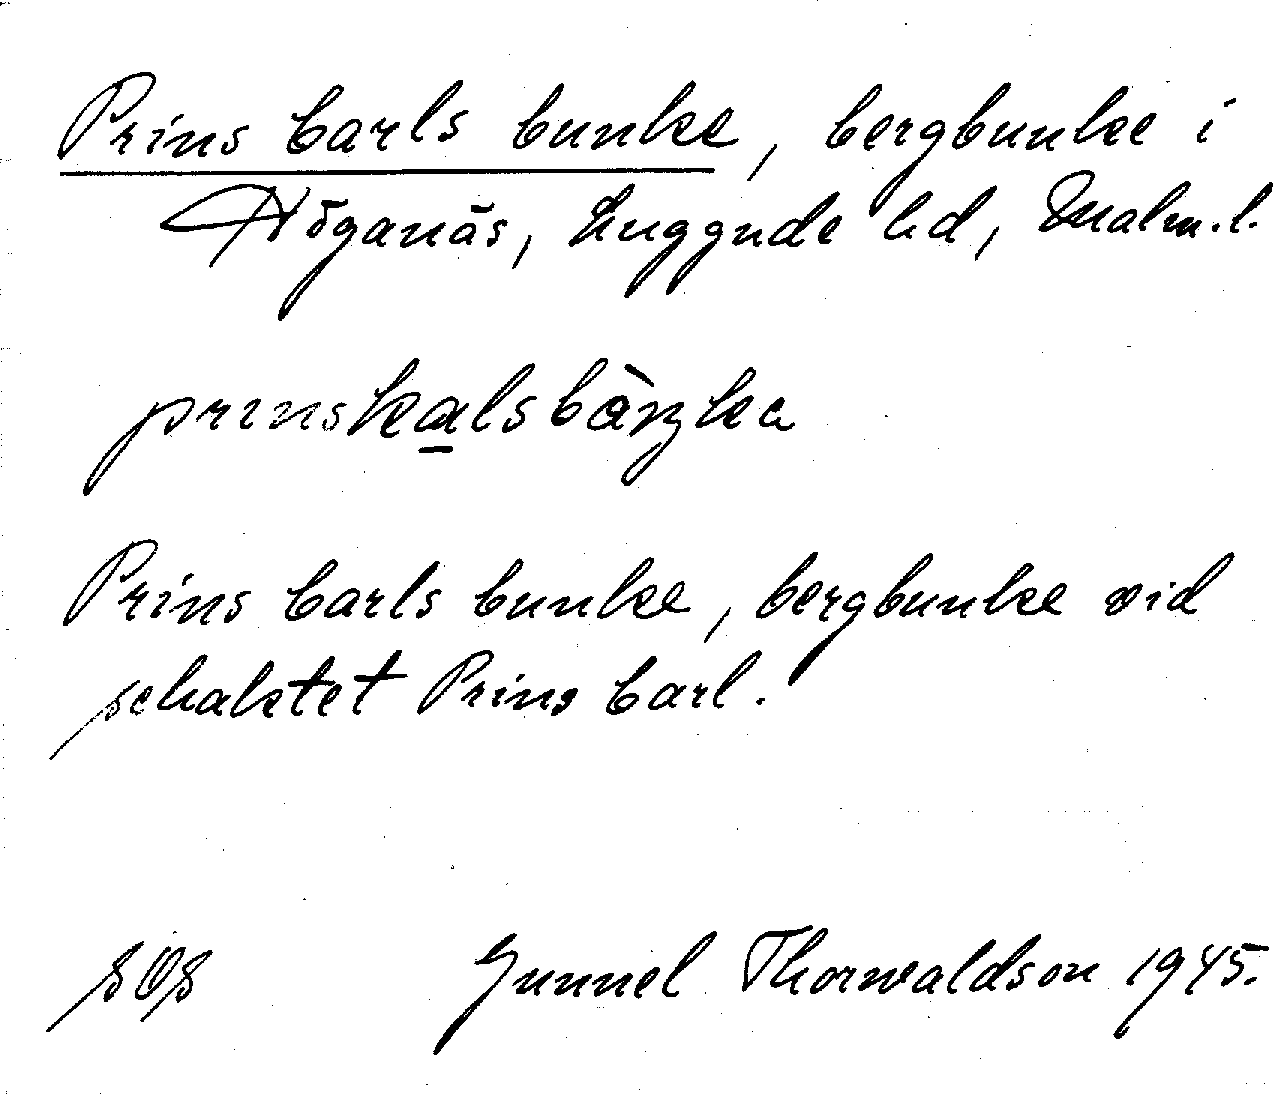 Prins Carls bunke, bergbunke i
Höganäs, Luggude hd, Malm.l.
prinskalsbàŋka
Prins Carls bunke, bergbunke vid
schaktet Prins Carl.
SOS Gunnel Thorwaldson 1945.